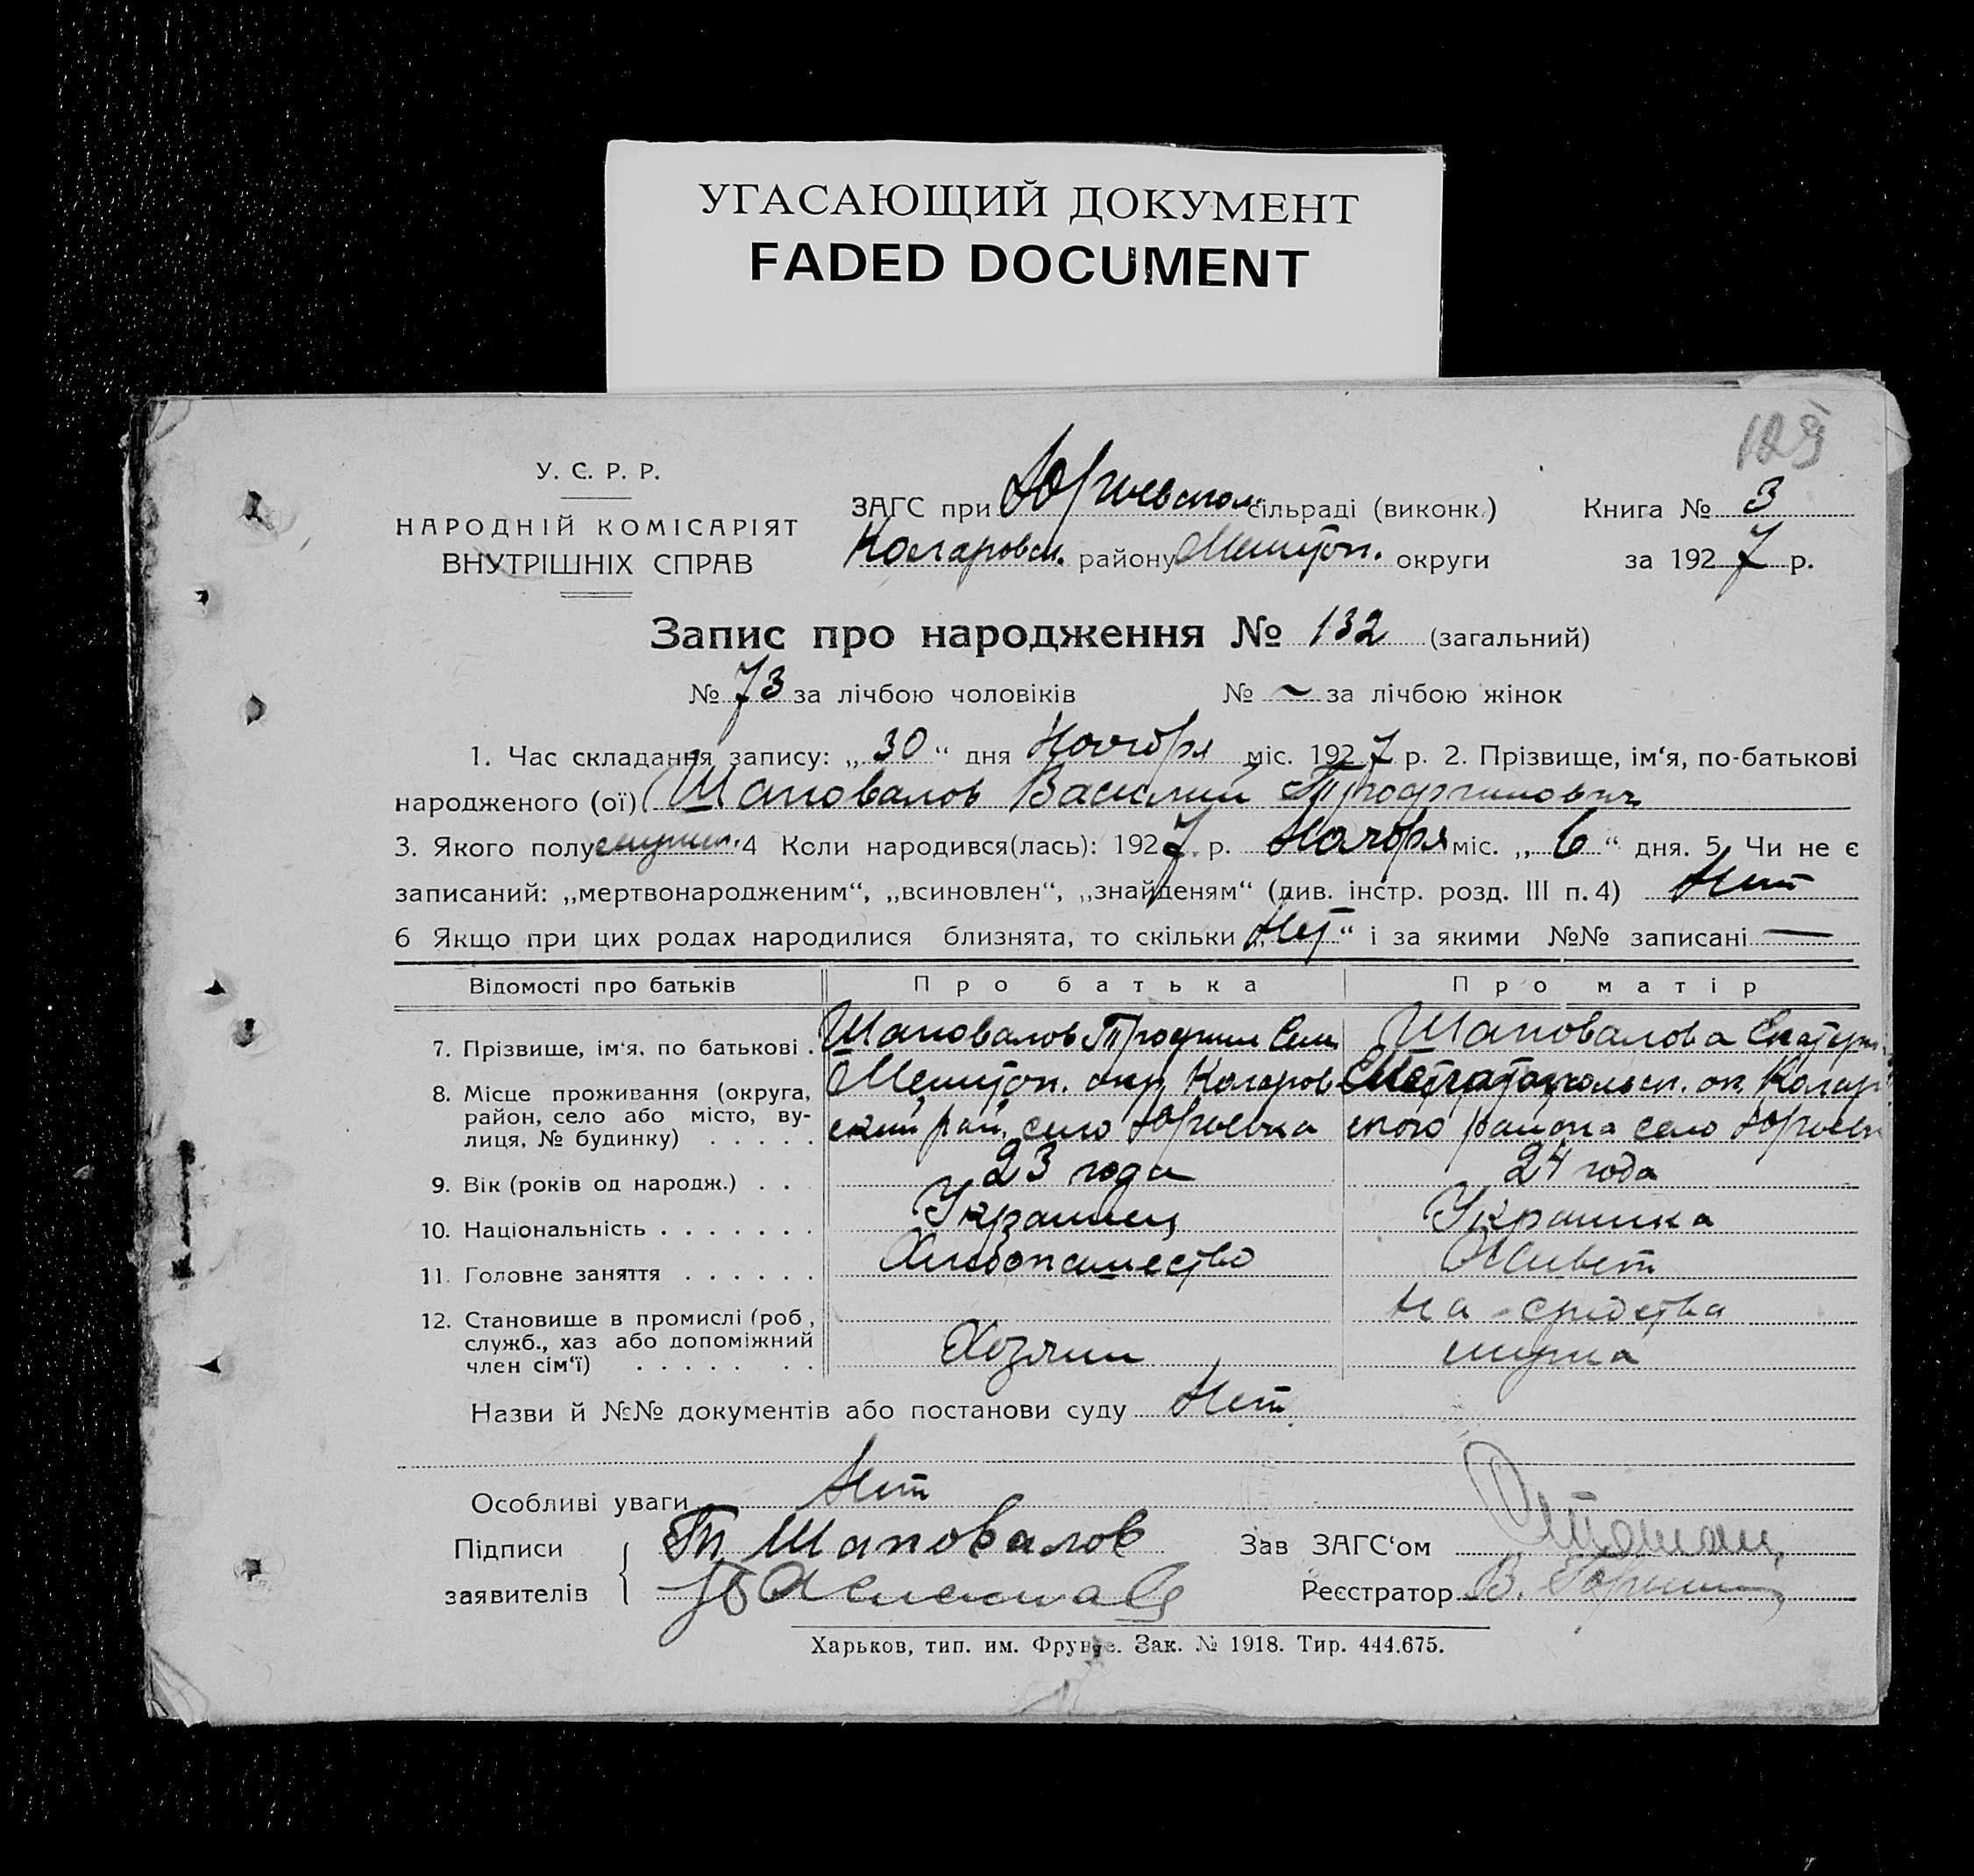 УГАСАЮЩИЙ ДОКУМЕНТ
FADED DOCUMENT
129
У. С. Р. Р.
НАРОДНІЙ КОМІСАРІЯТ
ВНУТРІШНІХ СПРАВ
ЗАГС при Юрьевском сільраді (виконк.)
Коларовск. району Мелитоп. округи
Книга № 3
за 1927 р.
Запис про народження № 132 (загальний)
№ 73 за лічбою чоловіків № ~ за лічбою жінок
1. Час складання запису: „30“ дня Ноября міс. 1927 р. 2. Прізвище, ім‘я, по-батькові
народженого (ої) Шаповалов Василий Трофимович
3. Якого полу мужск. 4 Коли народився(лась): 1927 р. Ноября міс. „6“ дня. 5. Чи не є
записаний: „мертвонародженим“, „всиновлен“, „знайденям“ (див. інстр. розд. III п. 4) Нет
6 Якщо при цих родах народилися близнята, то скільки „Нет“ і за якими №№ записані —
Відомості про батьків Про батька Про матір
7. Прізвище, ім‘я, по батькові . Шаповалов Трофим Сем Шаповалова Екатери
8. Місце проживання (округа, район, село або місто, вулиця, № будинку) . . . . . Мелитоп. окр Коларовский рай, село Юрьевка ок. Колар ского района село Юрьевк
9. Вік (років од народж.) . . 23 года 24 года
10. Національність . . . . . . . Украинец Украинка
11. Головне заняття . . . . . . Хлебопашество Живет
на средства
12. Становище в промислі (роб., служб., хаз або допоміжний член сім‘ї) . . . . . . . Хозяин мужа
Назви й №№ документів або постанови суду Нет
Особливі уваги Нет
Підписи
заявителів
Тр Шаповалов
Зав ЗАГС‘ом
Реєстратор В.
Харьков, тип. им. Фрунзе. Зак. № 1918. Тир. 444.675.